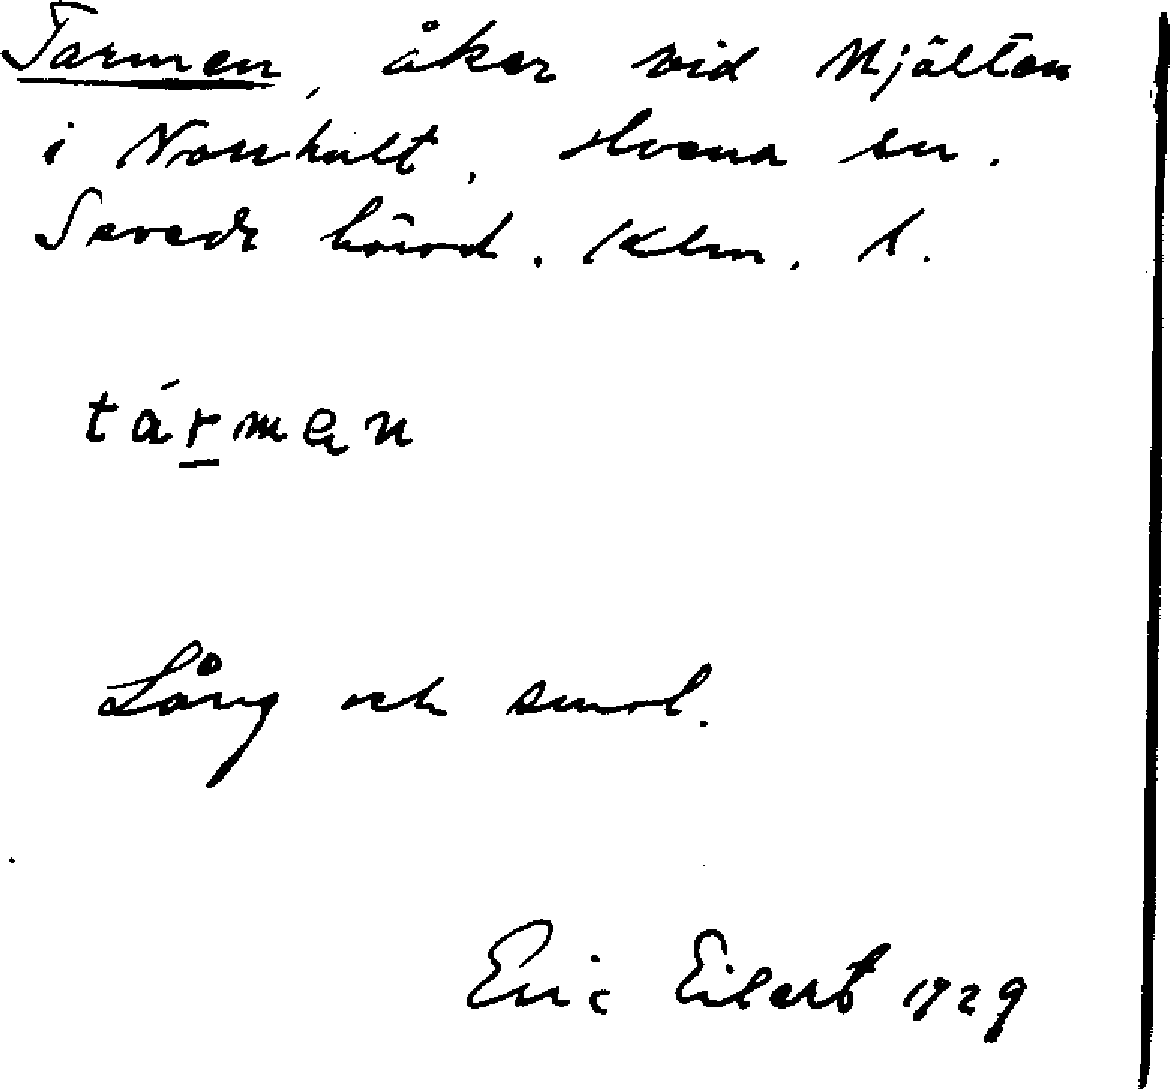 Tarmen, åker vid Mjälten
i Norrhult, Hvena sn.
Sevede härad. Klm. l.
tármən
Lång och smal.
Eric Eilert 1929